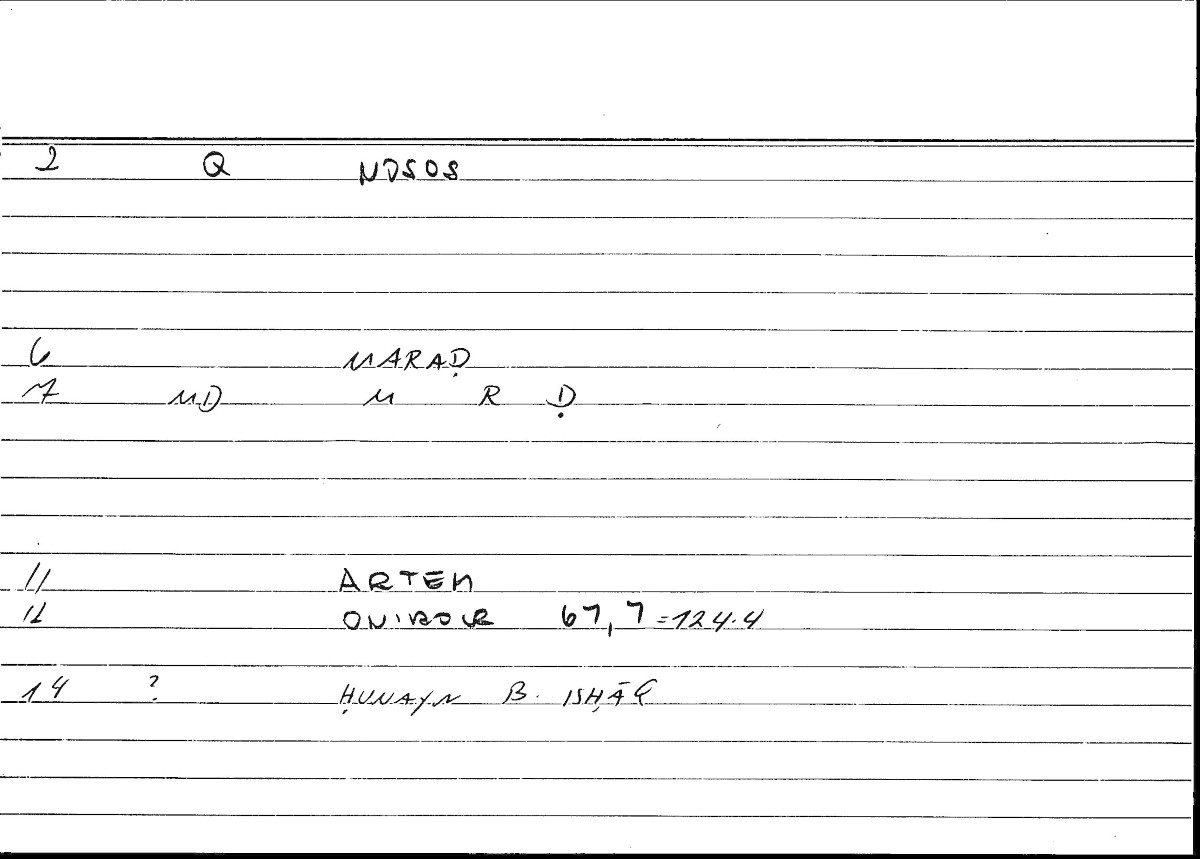 2 Q NOSOS
6 MARAḌ
7 MD M R Ḍ
11 ARTEM
12 ONIROCR 67,7 =124.4
14 ? ḤUNAYN B. ISḤĀQ